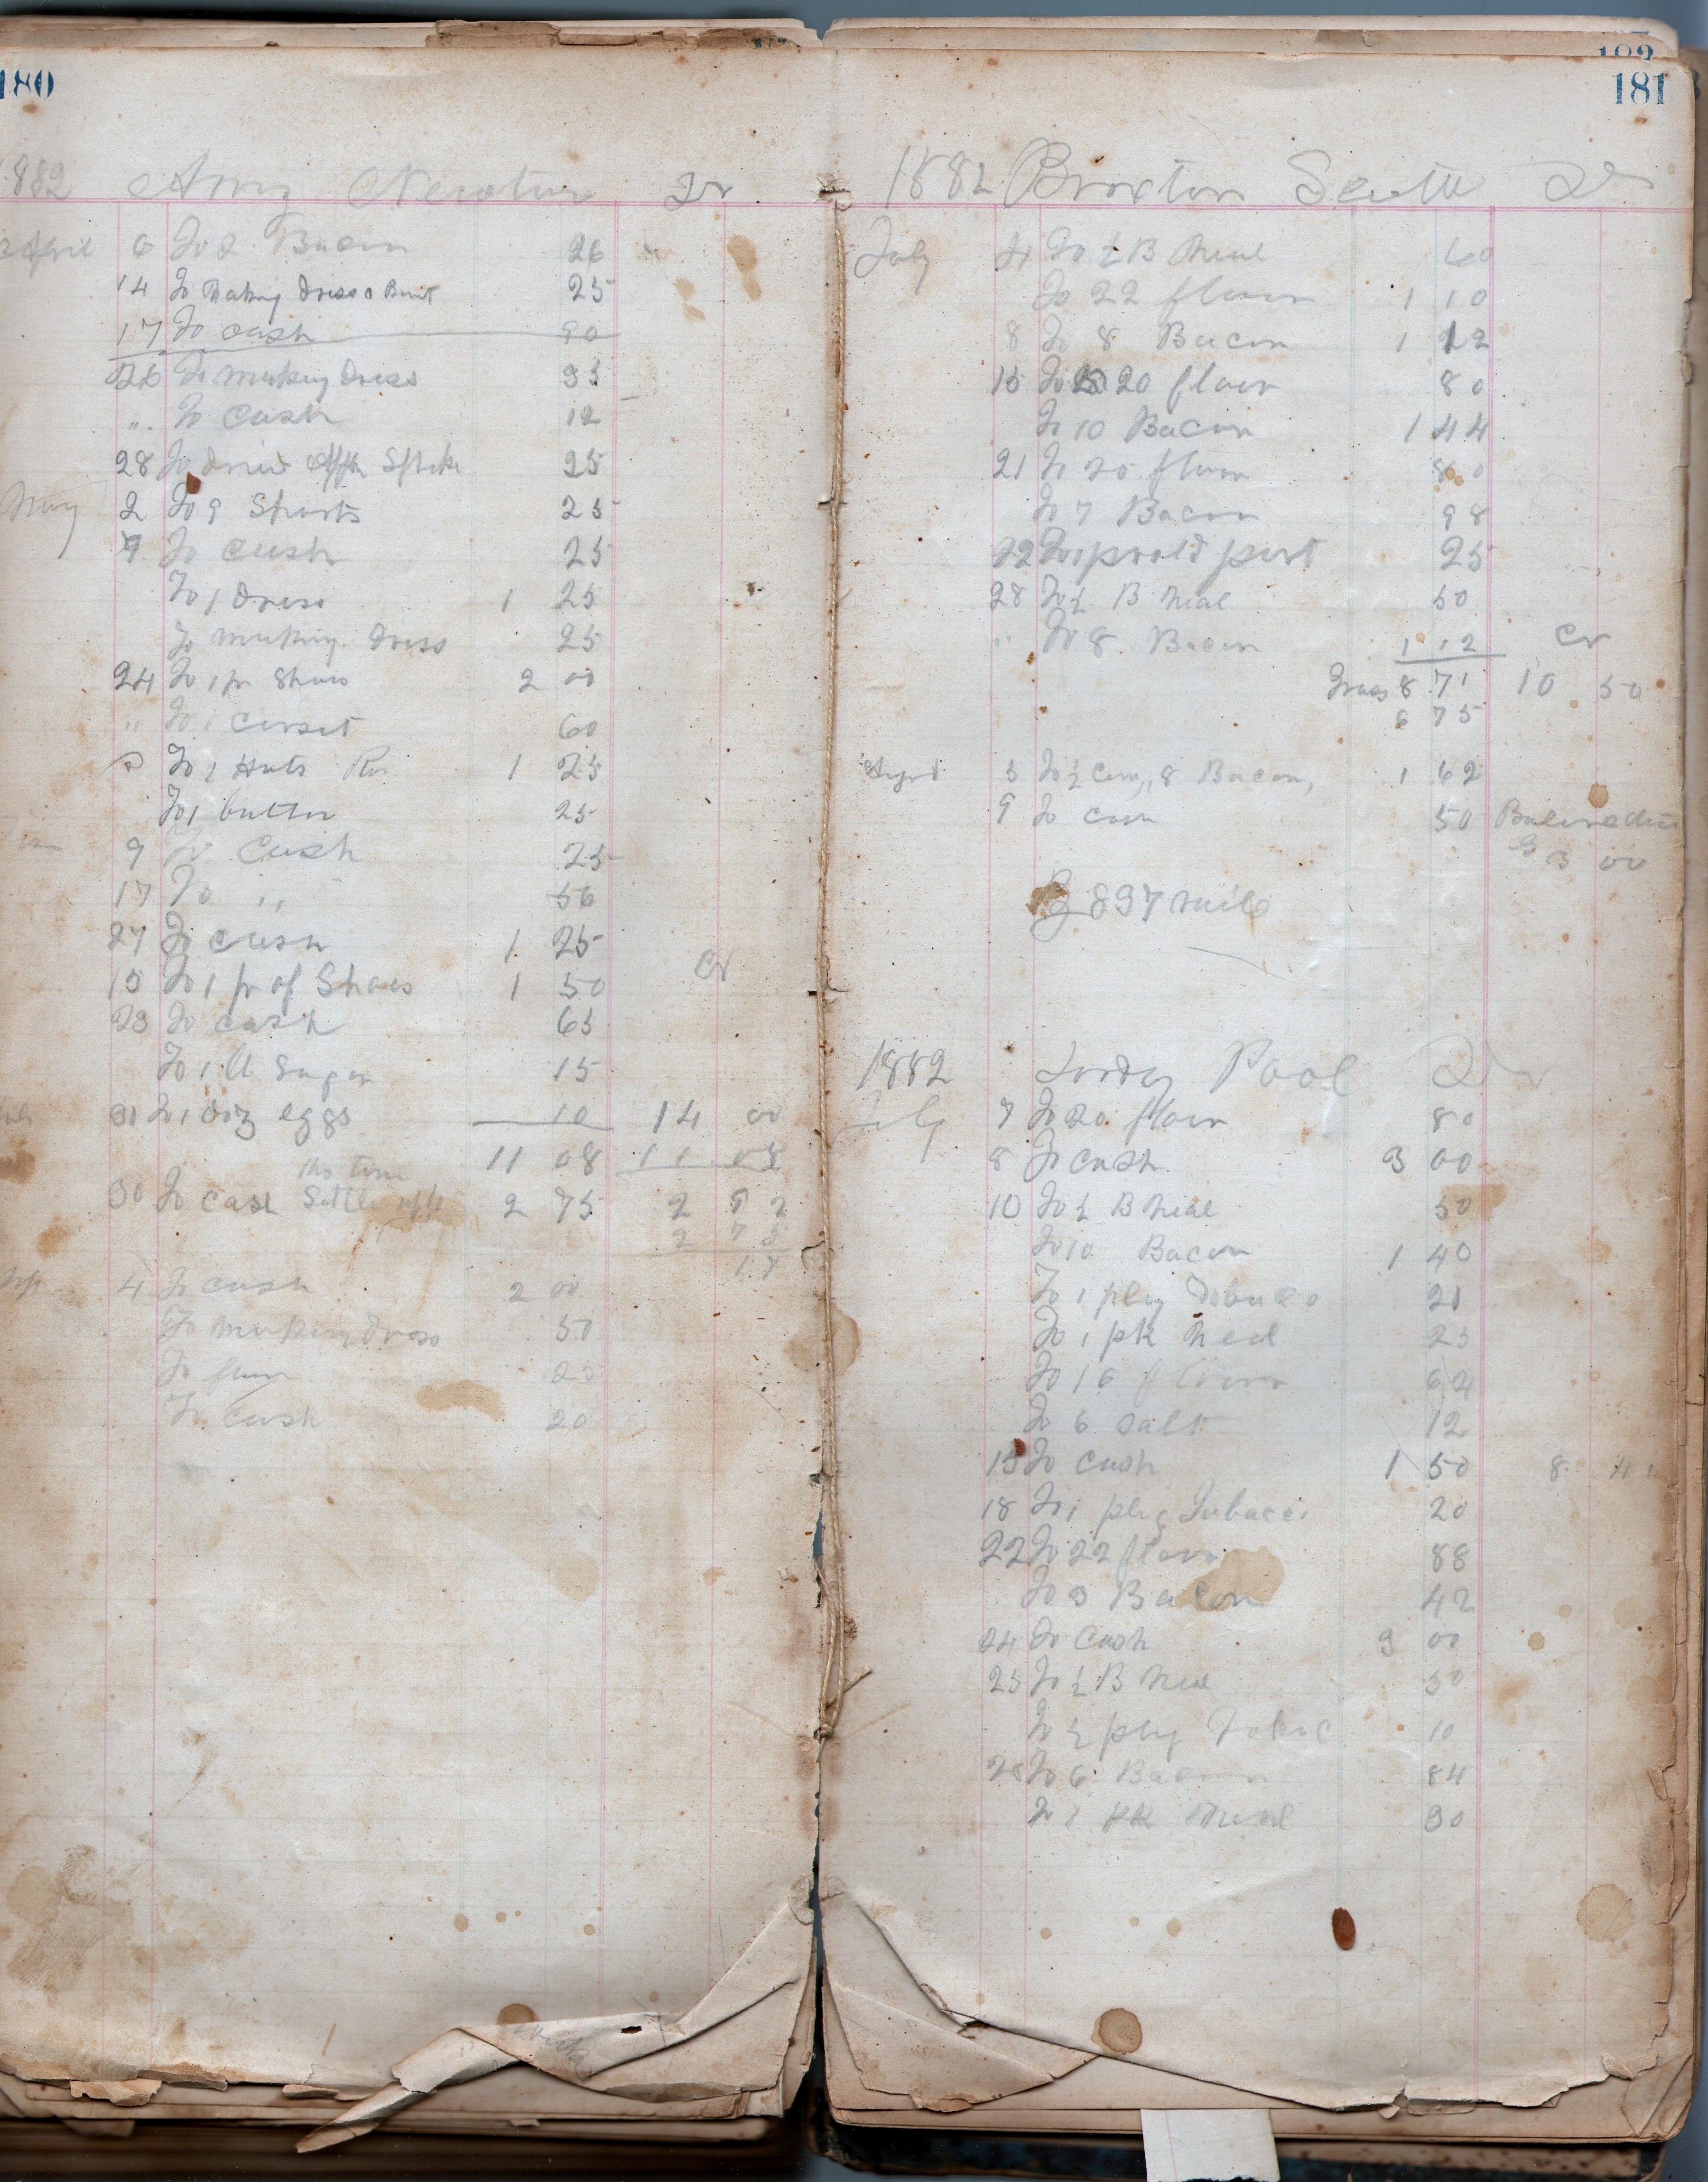 180
1882 Amy Newton Dr
April 6 To 2 Bacon 26
14 To Making Dress & Bunt 25
17 To Cash 90
26 To Making Dress 35
" To Cash 12
28 To Dried Apple 25
May 2 To 9 Shorts 25
9 To Cash 25
To 1 Dress 1 25
To Making Dress 25
24 To 1 pr Shoes 2 00
" To 1 Corset 60
To 2 Hats 1 25
To 1 butter 25
9 To Cash 25
17 To " 56
27 To Cash 1 25
Cr
15 To 1 pr of Shoes 1 50
23 To Cash 65
To 1 lb Sugar 15
31 To 1 Doz eggs 10 14 00
11 08 11 08
this time
30 To Case Settle 2 75 2 92
2 75
17
4 To Cash 2 00
To Making Dress 50
To flour 25
To Cash 20
181
1882 Braxton Scott Dr
July 4 To ½ B Meal 60
To 22 flour 1 10
8 To 8 Bacon 1 12
15 To 20 flour 80
To 10 Bacon 1 44
21 To 20 flour 80
To 7 Bacon 98
22 To 1 pr old part 25
28 To ½ B Meal 50
" To 8 Bacon 1 12 Cr
8 71 10 50
6 75
August 5 To ½ Corn, 8 Bacon, 1 62
9 To Cash 50 Balance due
3 00
By 897 rails
1882 Pool Dr
July 7 To 20 flour 80
8 To Cash 3 00
10 To ½ B Meal 50
To 10 Bacon 1 40
To 1 plug Tobaco 20
To 1 pk Meal 25
To 16 flour 64
To 6 Salt 12
15 To Cash 1 50 8 41
18 To 1 plug Tobacco 20
22 To 22 flour 88
To 3 Bacon 42
24 To Cash 3 00
25 To ½ B Meal 50
To ½ plug Tobac 10
28 To 6 Bacon 84
To 1 pk Meal 30